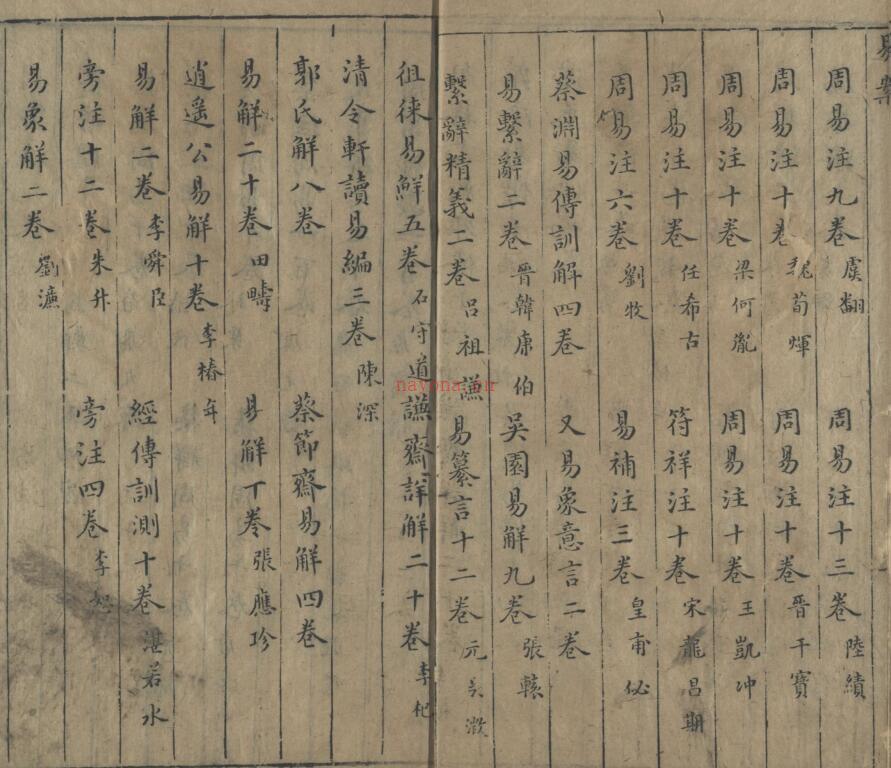 周易注九卷 虞翻 周易注十三卷 陸績
周易注十卷 魏荀煇 周易注十卷 晉干寶
周易注十卷 梁何胤 周易注十卷 王凱冲
周易注十卷 任希古 符祥注十卷 宋龍昌期
周易注六卷 劉牧 易補注三卷 皇甫佖
蔡淵易傳訓解四卷 又易象意言二卷
易繫辭二卷 晉韓康伯 吳園易解九卷 張轅
繫辭精義二卷 吕祖謙 易纂言十二卷 元吳澂
徂徠易解五卷 石守道 謙齋詳解二十卷 李杞
清令軒讀易編三卷 陳深
郭氏解八卷 蔡節齋易解四卷
易解二十卷 田疇 易解丁卷 張應珍
逍遙公易解十卷 李椿年
易解二卷 李舜臣 經傳訓測十卷 湛若水
旁注十二卷 朱升 旁注四卷 李恕
易象解二卷 劉濂
nayona.cn